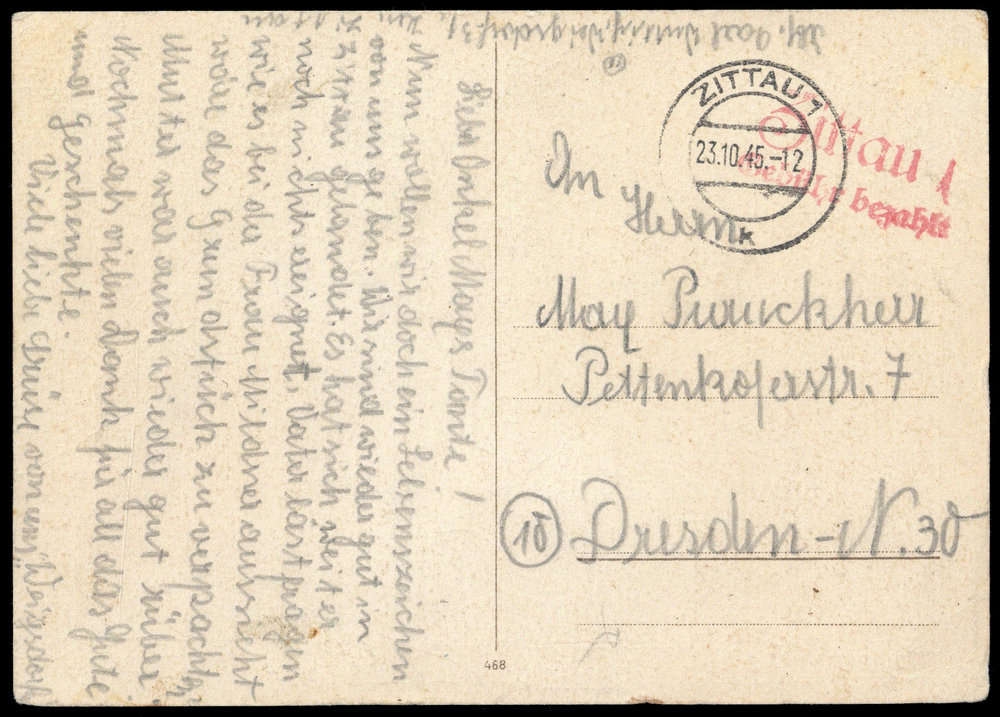 Zittau, den
Liebe Onkel Mayes Tante!
Nun wollen wir doch ein Lebenszeichen
von uns geben. Wir sind wieder gut in
Zittau gelandet. Es hat sich weiter
noch nichts ereignet. Vater läst fragen
wie es bei der Frau Mildner aussieht
wäre das Grundstück zu verpachten
Mutter war auch wieder gut rüber
Nochmals vielen Dank für all das Gute
und Geschenkte.
Viele liebe Grüße von uns Weigsdorf
ZITTAU 1
23.10.45.-12
k
Zittau 1
Gebühr bezahlt
An
Herrn
Max Pruckherr
Pettenkoferstr. 7
(10) Dresden-N. 30
468